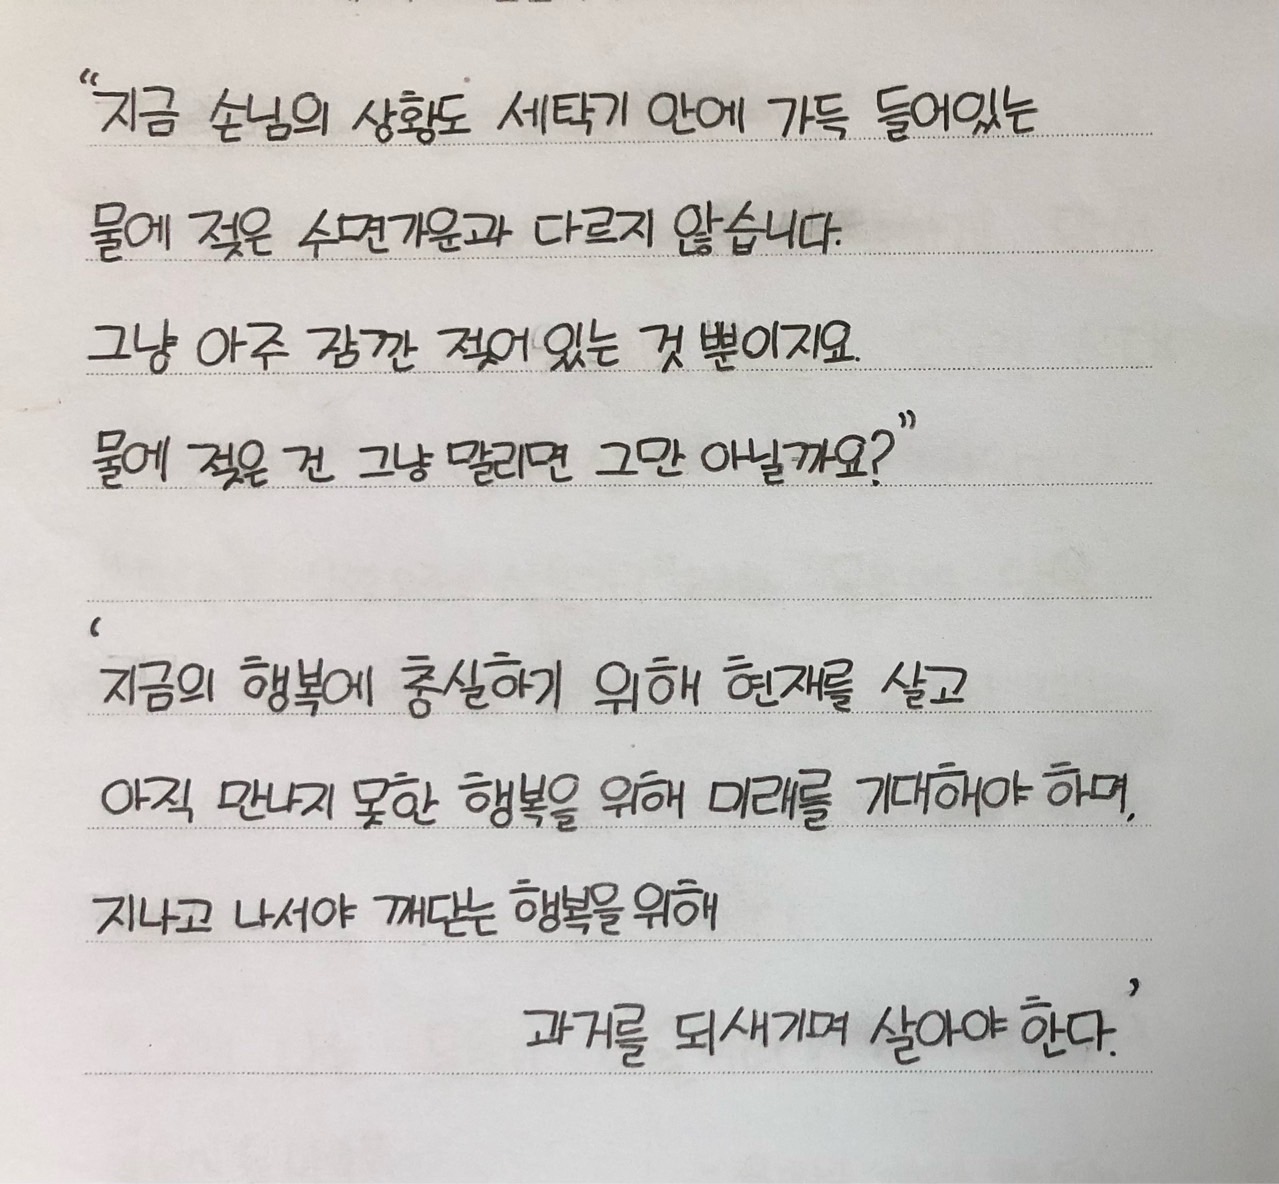 “지금 손님의 상황도 세탁기 안에 가득 들어있는
물에 젖은 수면가운과 다르지 않습니다.
그냥 아주 잠깐 젖어 있는 것 뿐이지요.
물에 젖은 건 그냥 말리면 그만 아닐까요?”
‘지금의 행복에 충실하기 위해 현재를 살고
아직 만나지 못한 행복을 위해 미래를 기대해야 하며,
지나고 나서야 깨닫는 행복을 위해
과거를 되새기며 살아야 한다.’